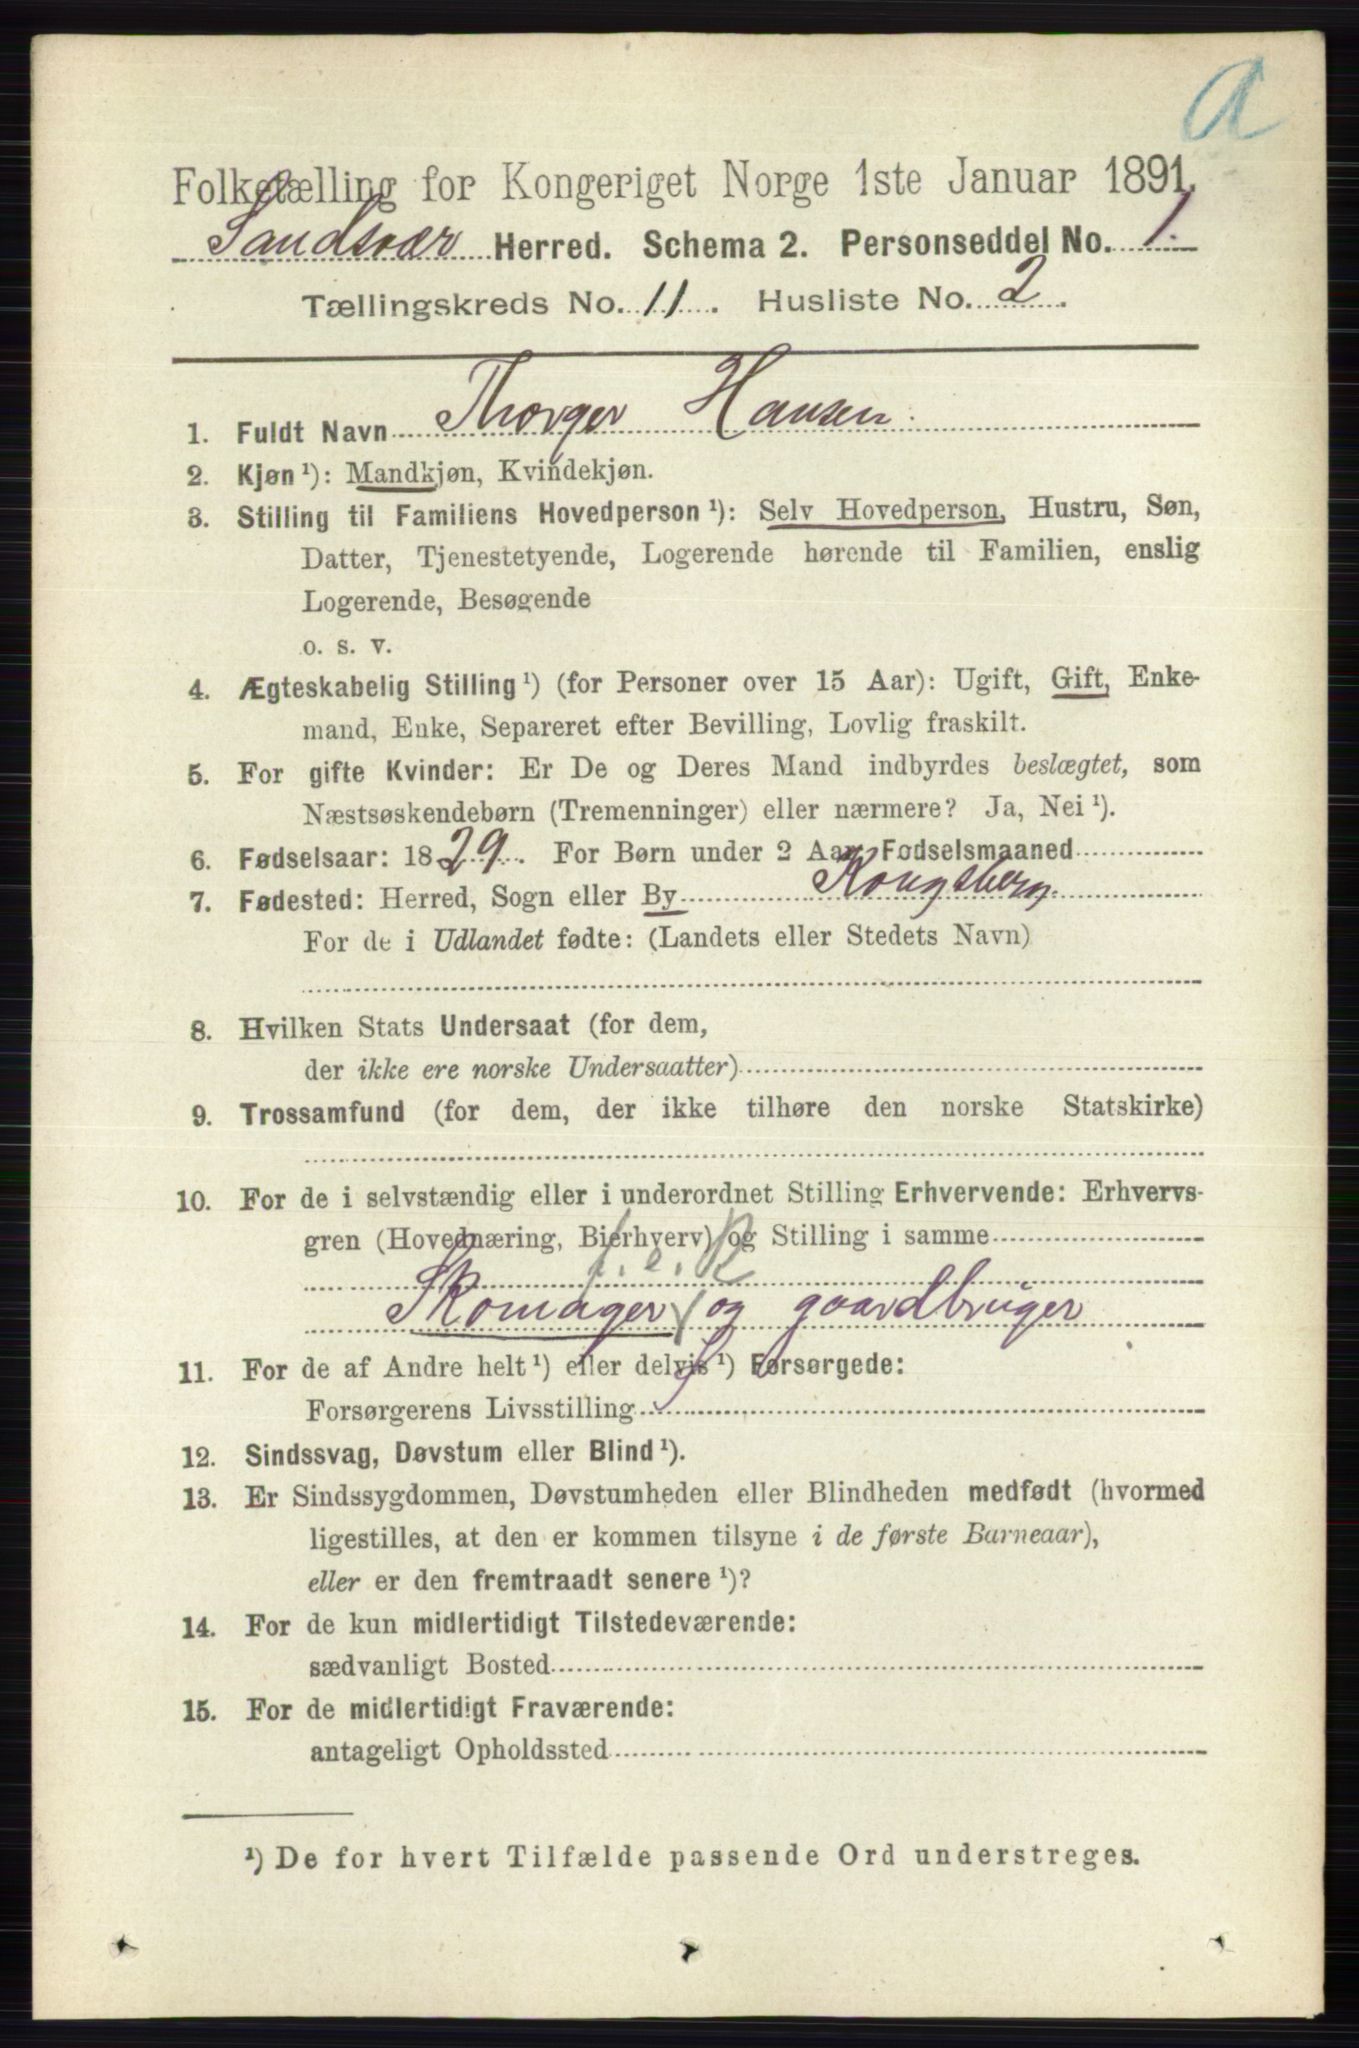 A
Folketælling for Kongeriget Norge 1ste Januar 1891.
Sandsvær Herred. Schema 2. Personseddel No. 1.
Tællingskreds No. 11. Husliste No. 2.
1. Fuldt Navn Thorger Hansen.
2. Kjøn ¹): Mandkjøn, Kvindekjøn.
3. Stilling til Familiens Hovedperson ¹): Selv Hovedperson, Hustru, Søn,
Datter, Tjenestetyende, Logerende hørende til Familien, enslig
Logerende, Besøgende
o. s. v.
4. Ægteskabelig Stilling ¹) (for Personer over 15 Aar): Ugift, Gift, Enke-
mand, Enke, Separeret efter Bevilling, Lovlig fraskilt.
5. For gifte Kvinder: Er De og Deres Mand indbyrdes beslægtet, som
Næstsøskendebørn (Tremenninger) eller nærmere? Ja, Nei ¹).
6. Fødselsaar: 1829. For Børn under 2 Aar, Fødselsmaaned
7. Fødested: Herred, Sogn eller By Kongsberg.
For de i Udlandet fødte: (Landets eller Stedets Navn)
8. Hvilken Stats Undersaat (for dem,
der ikke ere norske Undersaatter)
9. Trossamfund (for dem, der ikke tilhøre den norske Statskirke)
10. For de i selvstændig eller i underordnet Stilling Erhvervende: Erhvervs-
gren (Hovednæring, Bierhverv) og Stilling i samme
Skomager og gaardbruger
11. For de af Andre helt ¹) eller delvis ¹) Forsørgede:
Forsørgerens Livsstilling
12. Sindssvag, Døvstum eller Blind ¹).
13. Er Sindssygdommen, Døvstumheden eller Blindheden medfødt (hvormed
ligestilles, at den er kommen tilsyne i de første Barneaar),
eller er den fremtraadt senere ¹)?
14. For de kun midlertidigt Tilstedeværende:
sædvanligt Bosted
15. For de midlertidigt Fraværende:
antageligt Opholdssted
¹) De for hvert Tilfælde passende Ord understreges.